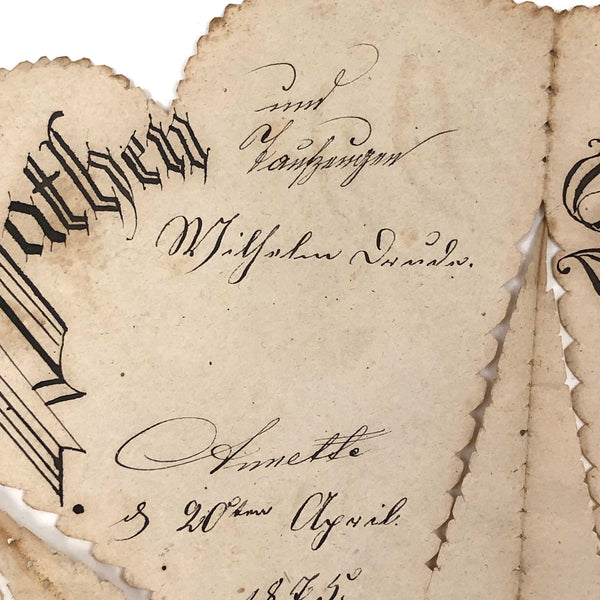 Pathen
und
Taufzeugen
Wilhelm Drude.
Annette
d 20ten April.
1875.